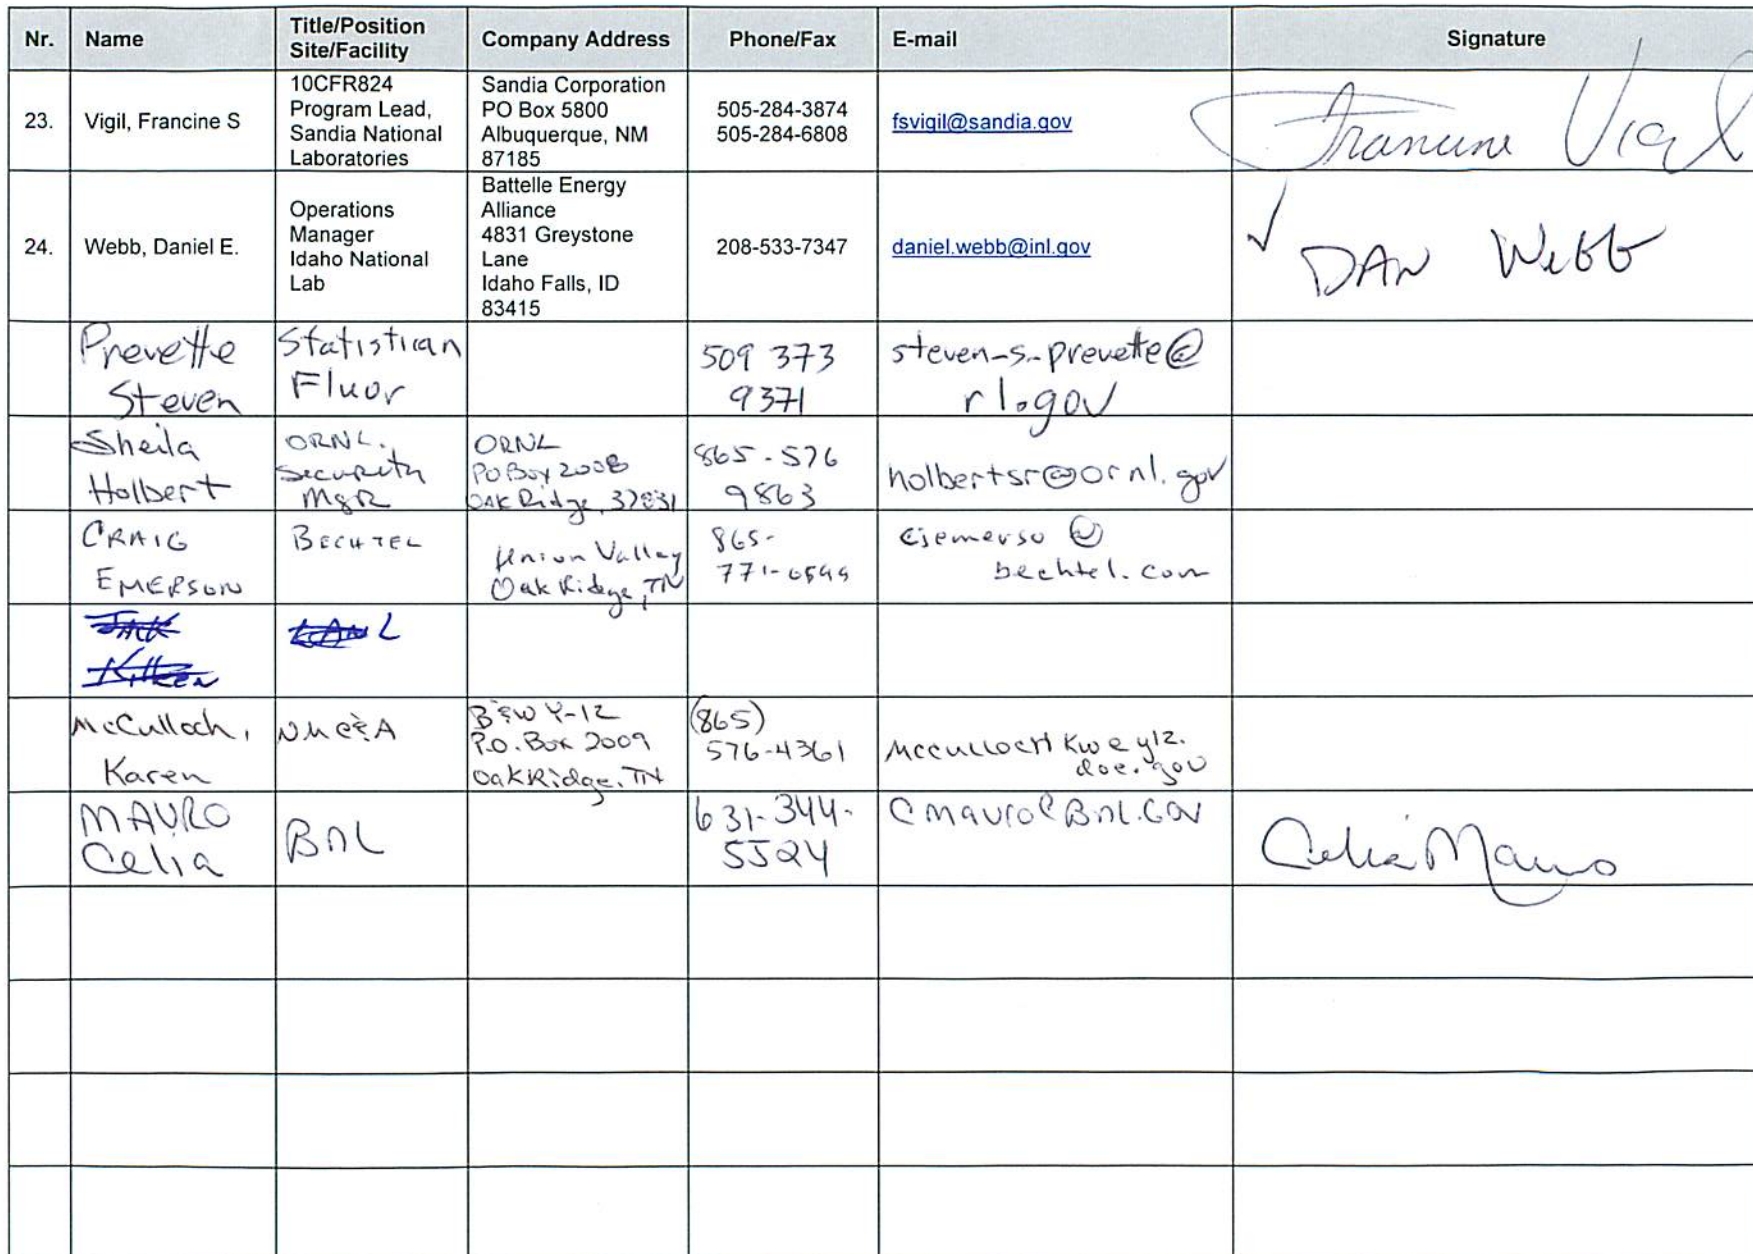 Nr.
Name
Title/Position
Site/Facility
Company Address
Phone/Fax
E-mail
Signature
23.
Vigil, Francine S
10CFR824
Program Lead,
Sandia National
Laboratories
Sandia Corporation
PO Box 5800
Albuquerque, NM
87185
505-284-3874
505-284-6808
fsvigil@sandia.gov
Francine Vigil
24.
Webb, Daniel E.
Operations
Manager
Idaho National
Lab
Battelle Energy
Alliance
4831 Greystone
Lane
Idaho Falls, ID
83415
208-533-7347
daniel.webb@inl.gov
✓ DAN Webb
Prevette
Steven
Statistician
Fluor
509 373
9371
steven-s-prevette@
rl.gov
Sheila
Holbert
ORNL.
Security
MgR
ORNL
PO Box 2008
Oak Ridge, 37831
865-576
9863
holbertsr@ornl.gov
CRAIG
EMERSON
BECHTEL
Union Valley
Oak Ridge, TN
865-
771-
bechtel.com
LANL
McCulloch,
Karen
NMC&A
B&W Y-12
P.O. Box 2009
Oak Ridge, TN
(865)
576-4361
MCCULLOCHKW@Y12.
doe.gov
MAURO
Celia
BNL
631-344-
5524
CMauro@BNL.GOV
Celia Mauro